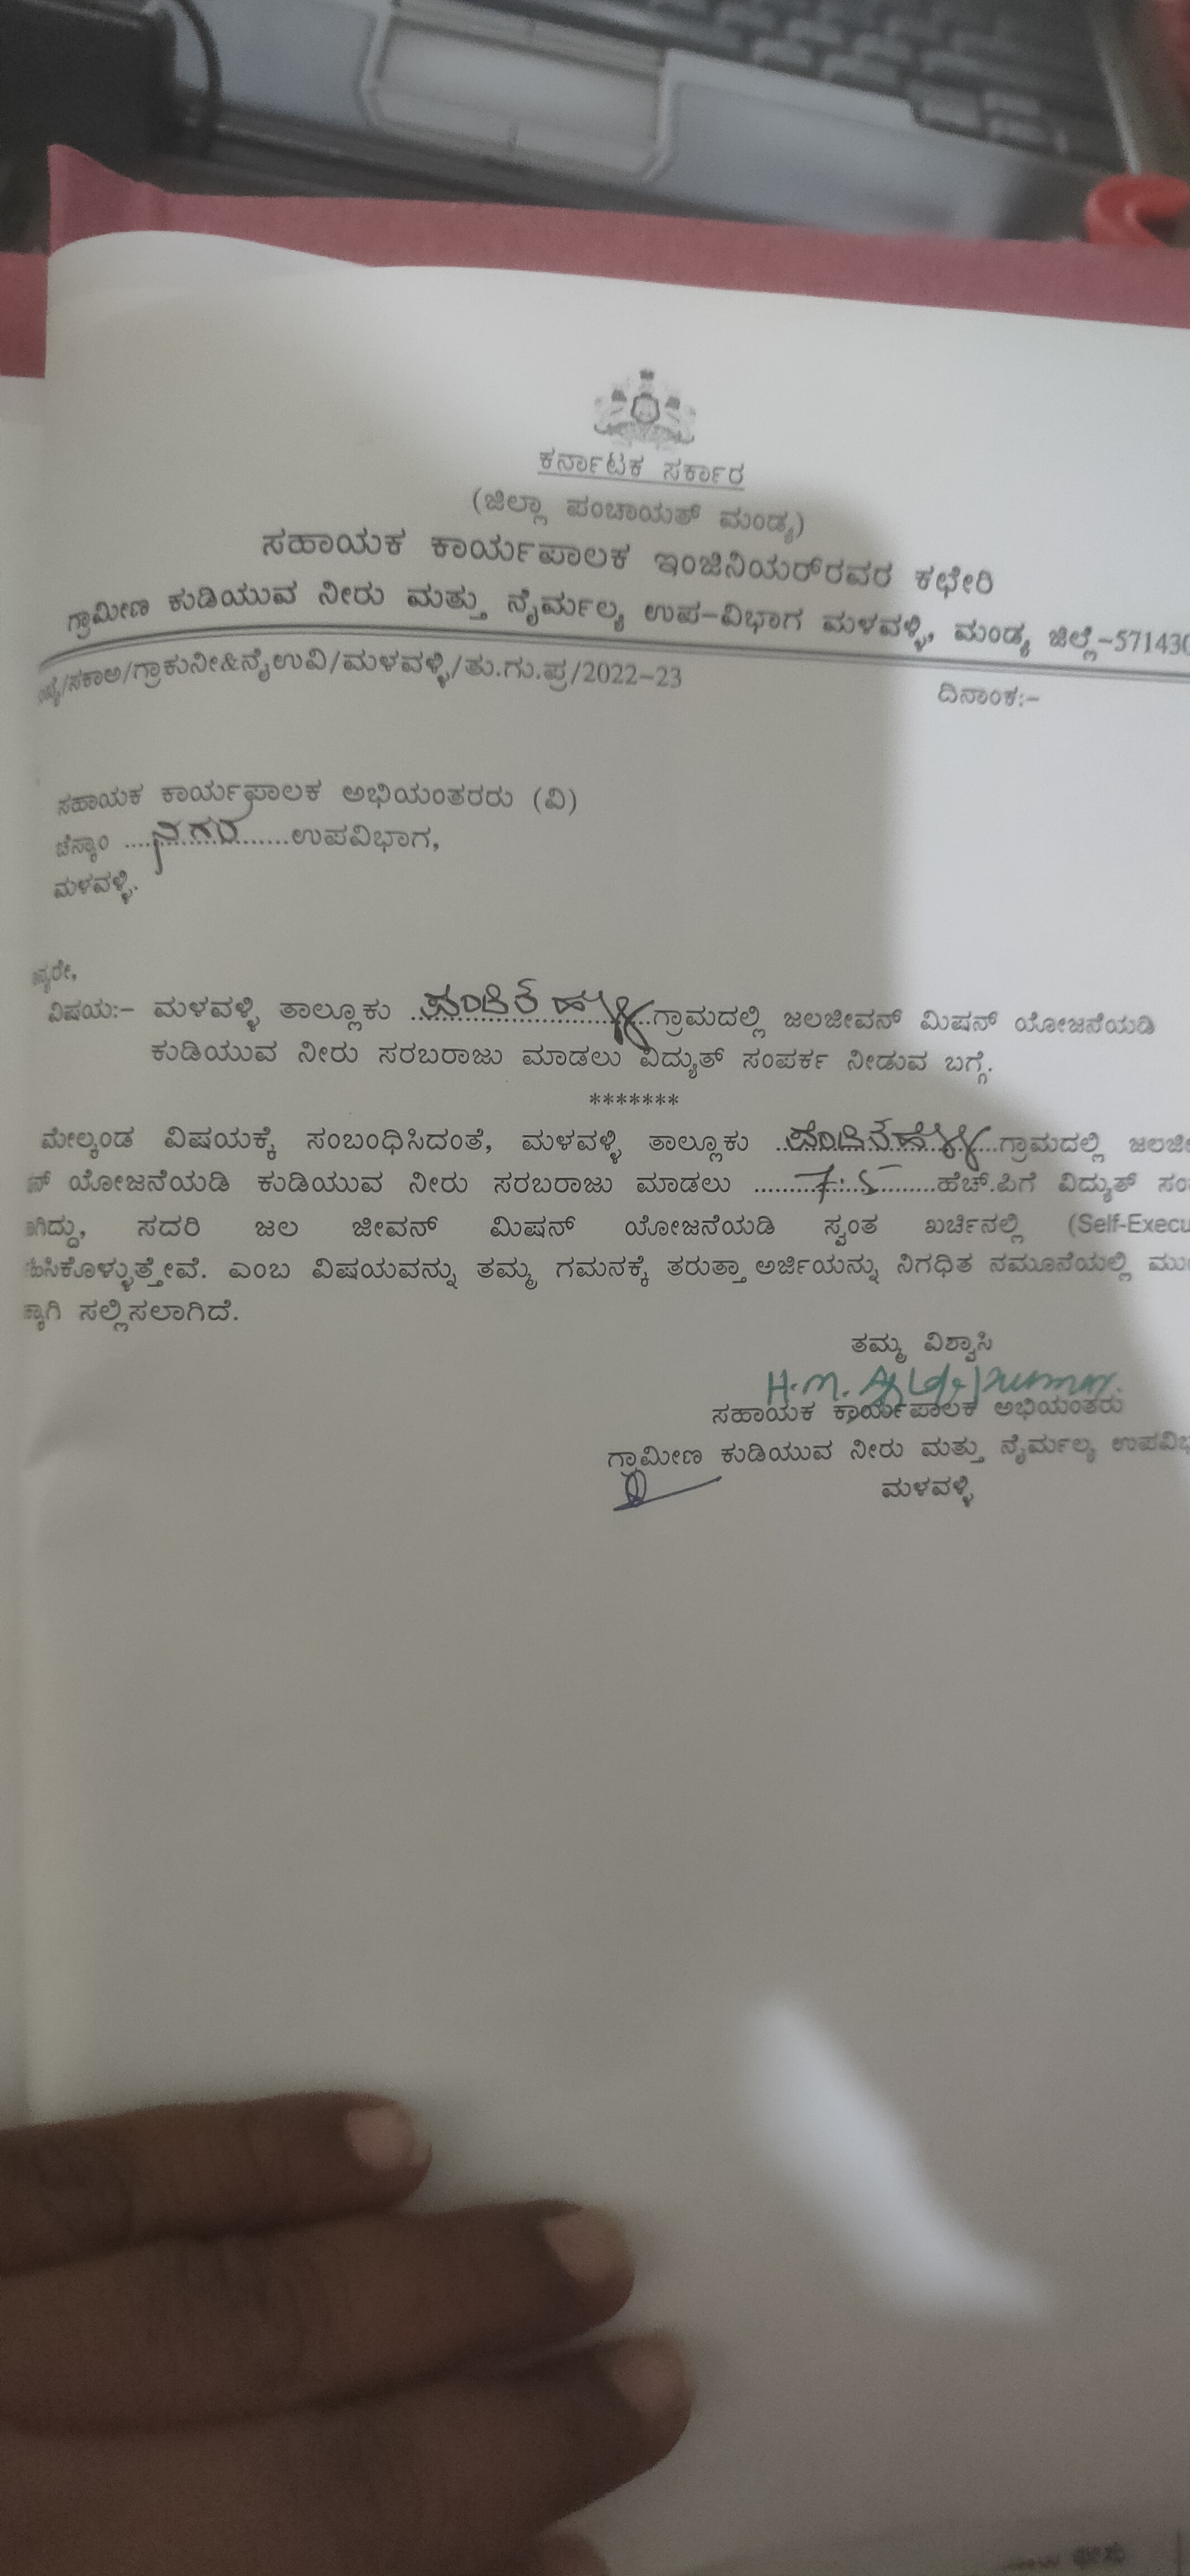 ಕರ್ನಾಟಕ ಸರ್ಕಾರ
(ಜಿಲ್ಲಾ ಪಂಚಾಯತ್ ಮಂಡ್ಯ)
ಸಹಾಯಕ ಕಾರ್ಯಪಾಲಕ ಇಂಜಿನಿಯರ್‌ರವರ ಕಛೇರಿ
ಗ್ರಾಮೀಣ ಕುಡಿಯುವ ನೀರು ಮತ್ತು ನೈರ್ಮಲ್ಯ ಉಪ-ವಿಭಾಗ ಮಳವಳ್ಳಿ, ಮಂಡ್ಯ ಜಿಲ್ಲೆ-571430
/ಸಕಾಅ/ಗ್ರಾಕುನೀ&ನೈಉವಿ/ಮಳವಳ್ಳಿ/ತು.ಗು.ಪ್ರ/2022-23
ದಿನಾಂಕ:-
ಸಹಾಯಕ ಕಾರ್ಯಪಾಲಕ ಅಭಿಯಂತರರು (ವಿ)
ಚೆಸ್ಕಾಂ ....ನಗರ.......ಉಪವಿಭಾಗ,
ಮಳವಳ್ಳಿ.
ವಿಷಯ:- ಮಳವಳ್ಳಿ ತಾಲ್ಲೂಕು ಗ್ರಾಮದಲ್ಲಿ ಜಲಜೀವನ್ ಮಿಷನ್ ಯೋಜನೆಯಡಿ
ಕುಡಿಯುವ ನೀರು ಸರಬರಾಜು ಮಾಡಲು ವಿದ್ಯುತ್ ಸಂಪರ್ಕ ನೀಡುವ ಬಗ್ಗೆ.
*******
ಮೇಲ್ಕಂಡ ವಿಷಯಕ್ಕೆ ಸಂಬಂಧಿಸಿದಂತೆ, ಮಳವಳ್ಳಿ ತಾಲ್ಲೂಕು ಗ್ರಾಮದಲ್ಲಿ
ಯೋಜನೆಯಡಿ ಕುಡಿಯುವ ನೀರು ಸರಬರಾಜು ಮಾಡಲು ........7.5........ಹೆಚ್.ಪಿಗೆ ವಿದ್ಯುತ್
ಸದರಿ ಜಲ ಜೀವನ್ ಮಿಷನ್ ಯೋಜನೆಯಡಿ ಸ್ವಂತ ಖರ್ಚಿನಲ್ಲಿ (Self-Execu
ಎಂಬ ವಿಷಯವನ್ನು ತಮ್ಮ ಗಮನಕ್ಕೆ ತರುತ್ತಾ ಅರ್ಜಿಯನ್ನು ನಿಗಧಿತ ನಮೂನೆಯಲ್ಲಿ
ಸಲ್ಲಿಸಲಾಗಿದೆ.
ತಮ್ಮ ವಿಶ್ವಾಸಿ
H.M.
ಸಹಾಯಕ ಕಾರ್ಯಪಾಲಕ ಅಭಿಯಂತರು
ಗ್ರಾಮೀಣ ಕುಡಿಯುವ ನೀರು ಮತ್ತು ನೈರ್ಮಲ್ಯ
ಮಳವಳ್ಳಿ